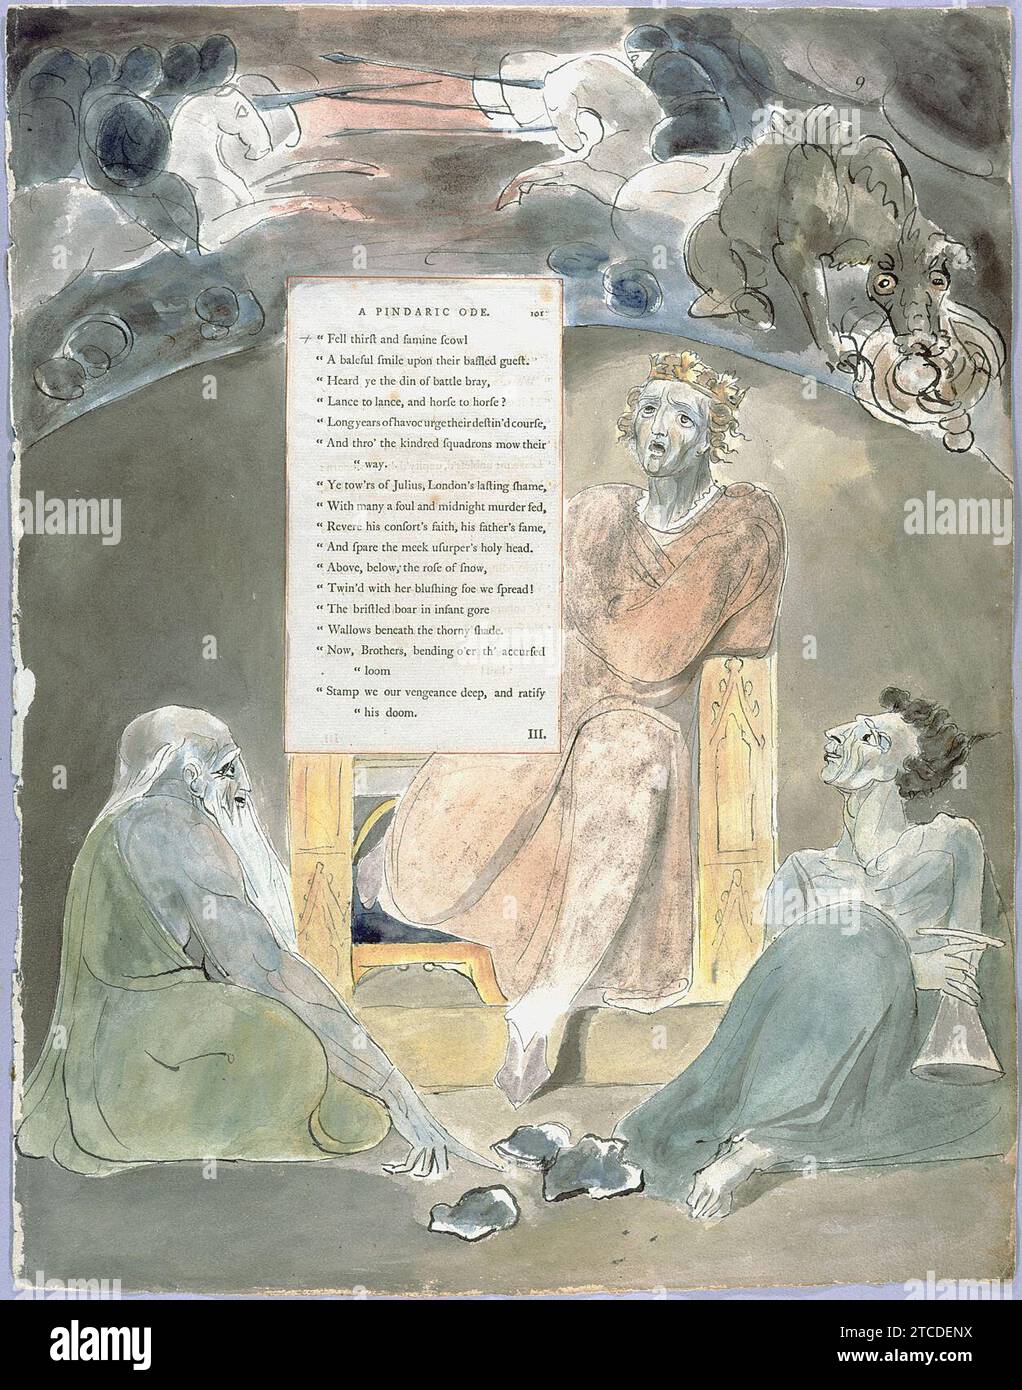 9
A PINDARIC ODE. 101
“ Fell thirſt and famine ſcowl
“ A baleful ſmile upon their baffled gueſt.
“ Heard ye the din of battle bray,
“ Lance to lance, and horſe to horſe ?
“ Long years of havoc urge their deſtin'd courſe,
“ And thro' the kindred ſquadrons mow their
“ way.
“ Ye tow'rs of Julius, London's laſting ſhame,
“ With many a foul and midnight murder fed,
“ Revere his conſort's faith, his father's fame,
“ And ſpare the meek uſurper's holy head.
“ Above, below, the roſe of ſnow,
“ Twin'd with her bluſhing foe we ſpread!
“ The briſtled boar in infant gore
“ Wallows beneath the thorny ſhade.
“ Now, Brothers, bending o'er th' accurſed
“ loom
“ Stamp we our vengeance deep, and ratify
“ his doom.
III.
alamy
Image ID: 2TCDENX
www.alamy.com